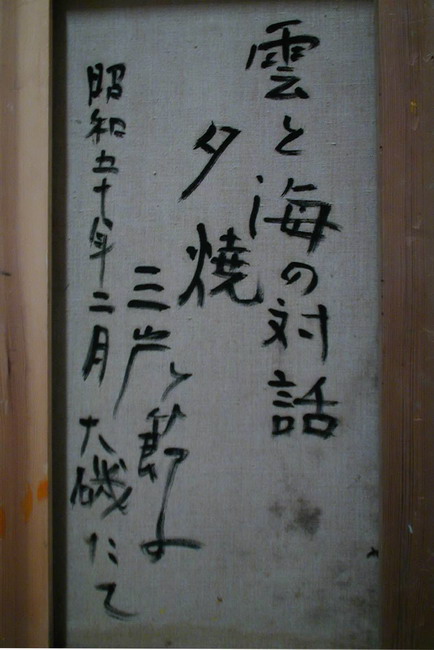 雲と海の対話
夕焼
三岸節子
昭和五十年二月 大磯にて